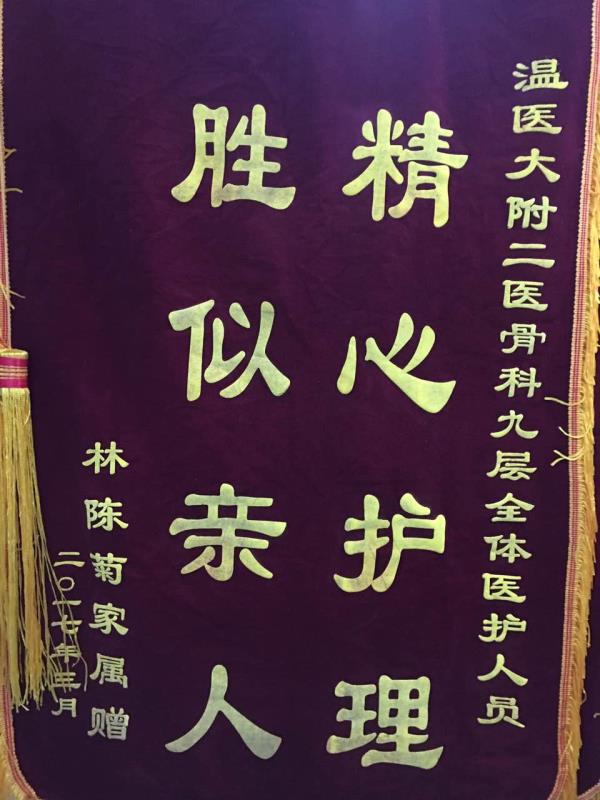 温医大附二医骨科九层全体医护人员
精心护理
胜似亲人
林陈菊家属赠
二〇一七年三月